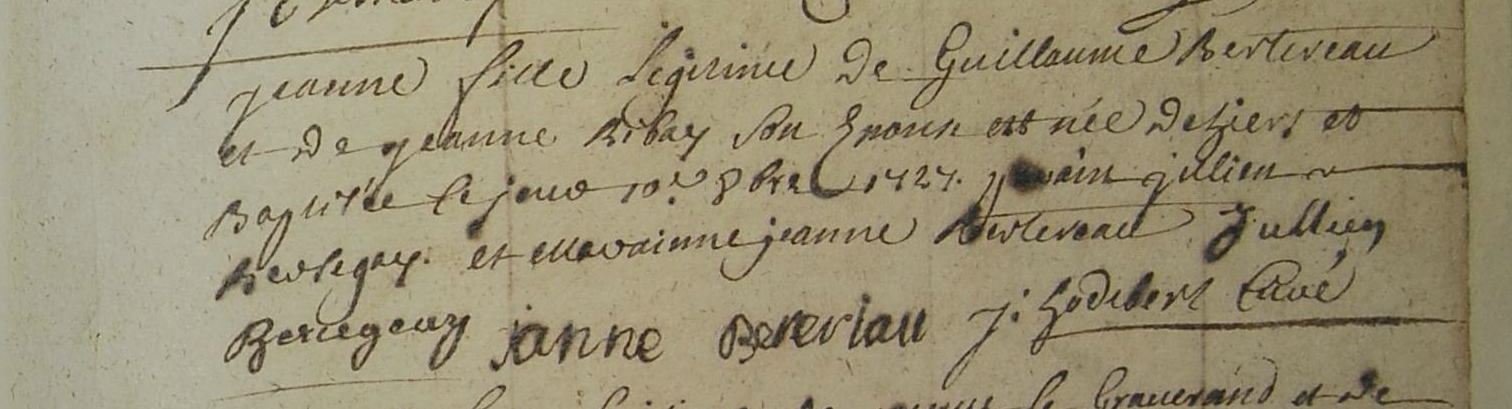 jeanne fille Legitime de Guillaume Bertereau
et de jeanne Ribay son Epouse est née dehiers et
Baptisée ce jour 10e 8bre 1727. parain jullien
et Marainne jeanne Bertereau Jullien
janne Berteriau J. Godebert Curé
le Graverand et de